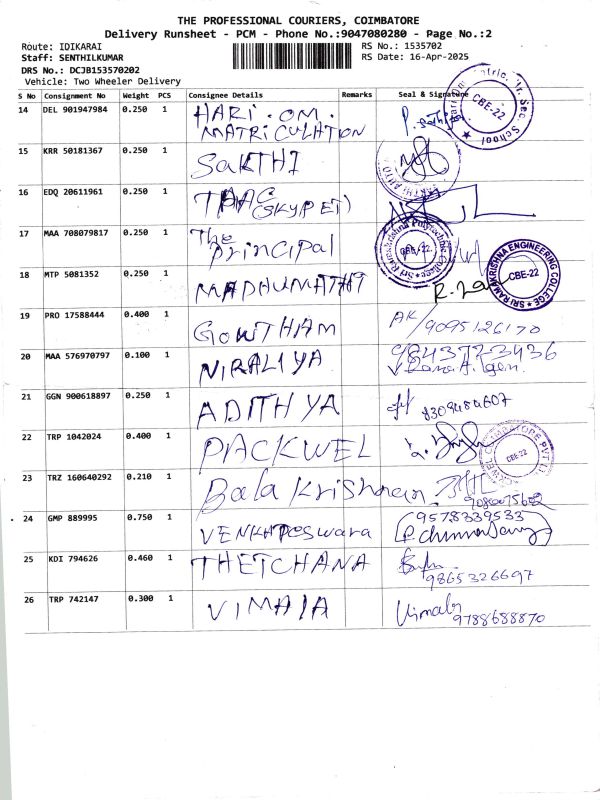 THE PROFESSIONAL COURIERS, COIMBATORE
Delivery Runsheet - PCM - Phone No.:9047080280 - Page No.:2
Route: IDIKARAI
RS No.: 1535702
Staff: SENTHILKUMAR
RS Date: 16-Apr-2025
DRS No.: DCJB153570202
Vehicle: Two Wheeler Delivery
S No Consignment No Weight PCS Consignee Details Remarks Seal & Signature
14 DEL 901947984 0.250 1 HARI . OM . MATRICULATION
CBE-22
School
15 KRR 50181367 0.250 1 SAKTHI
16 EDQ 20611961 0.250 1 TAAC (SKYPET)
17 MAA 708079817 0.250 1 The Principal
CBE-22
18 MTP 5081352 0.250 1 MADHUMATHI
SRI RAMAKRISHNA ENGINEERING COLLEGE
CBE-22
19 PRO 17588444 0.400 1 GOWTHAM
9095126170
20 MAA 576970797 0.100 1 NIRALIYA 9843723436
21 GGN 900618897 0.250 1 ADITHYA 8309484607
22 TRP 1042024 0.400 1 PACKWEL
CBE-22
23 TRZ 160640292 0.210 1 Bala Krishnan
24 GMP 889995 0.750 1 VENKATESwara 9578339533
25 KDI 794626 0.460 1 THETCHANA
9865326697
26 TRP 742147 0.300 1 VIMALA Vimala
9788688870